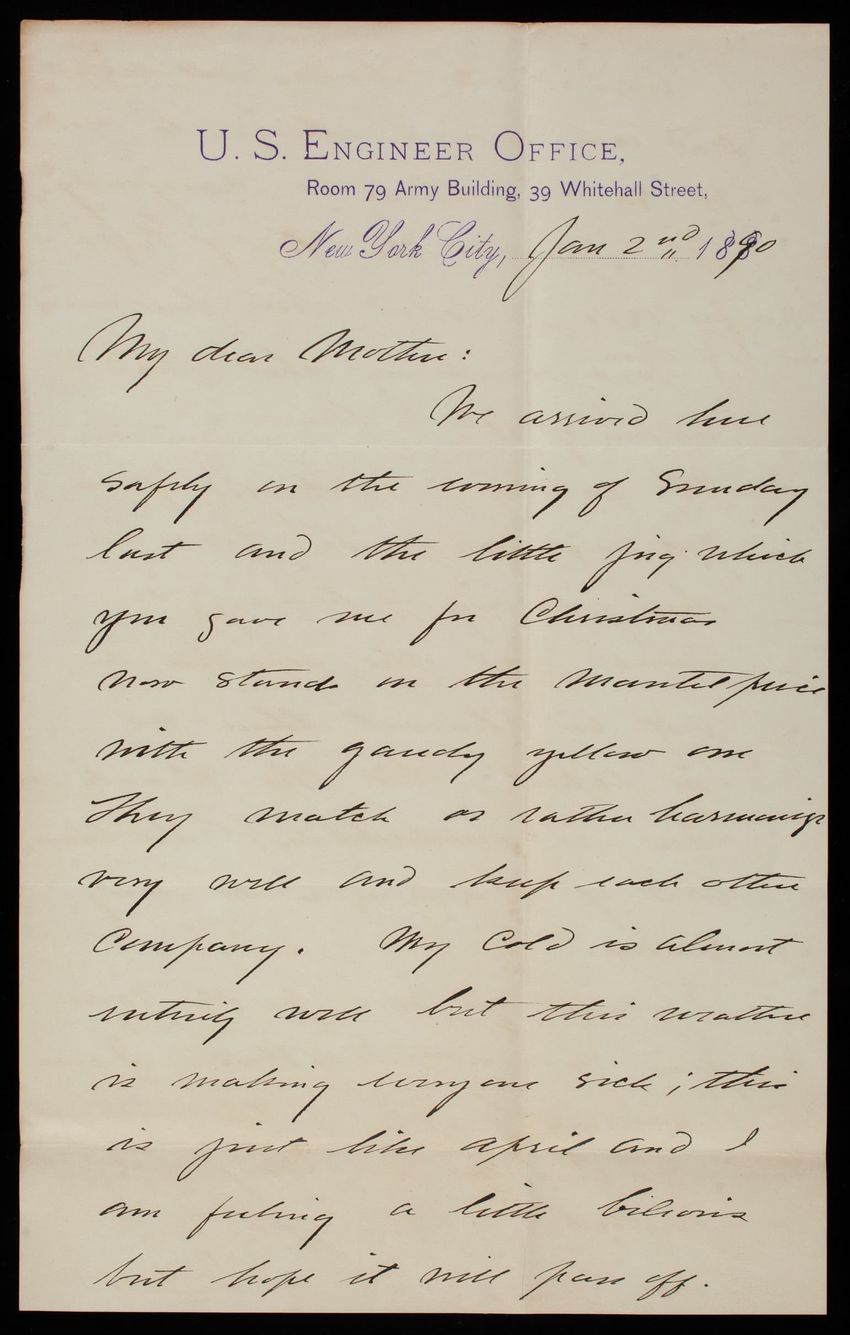 U. S. ENGINEER OFFICE,
Room 79 Army Building, 39 Whitehall Street,
New York City, Jan 2nd 1890
My dear Mother:
We arrived here
safely on the evening of Sunday
last and the little jug which
you gave me for Christmas
now stands on the mantel piece
with the gaudy yellow one
They match or rather harmonize
very well and keep each other
Company. My Cold is almost
entirely well but this weather
is making everyone sick; this
is just like April and I
am feeling a little bilious
but hope it will pass off.